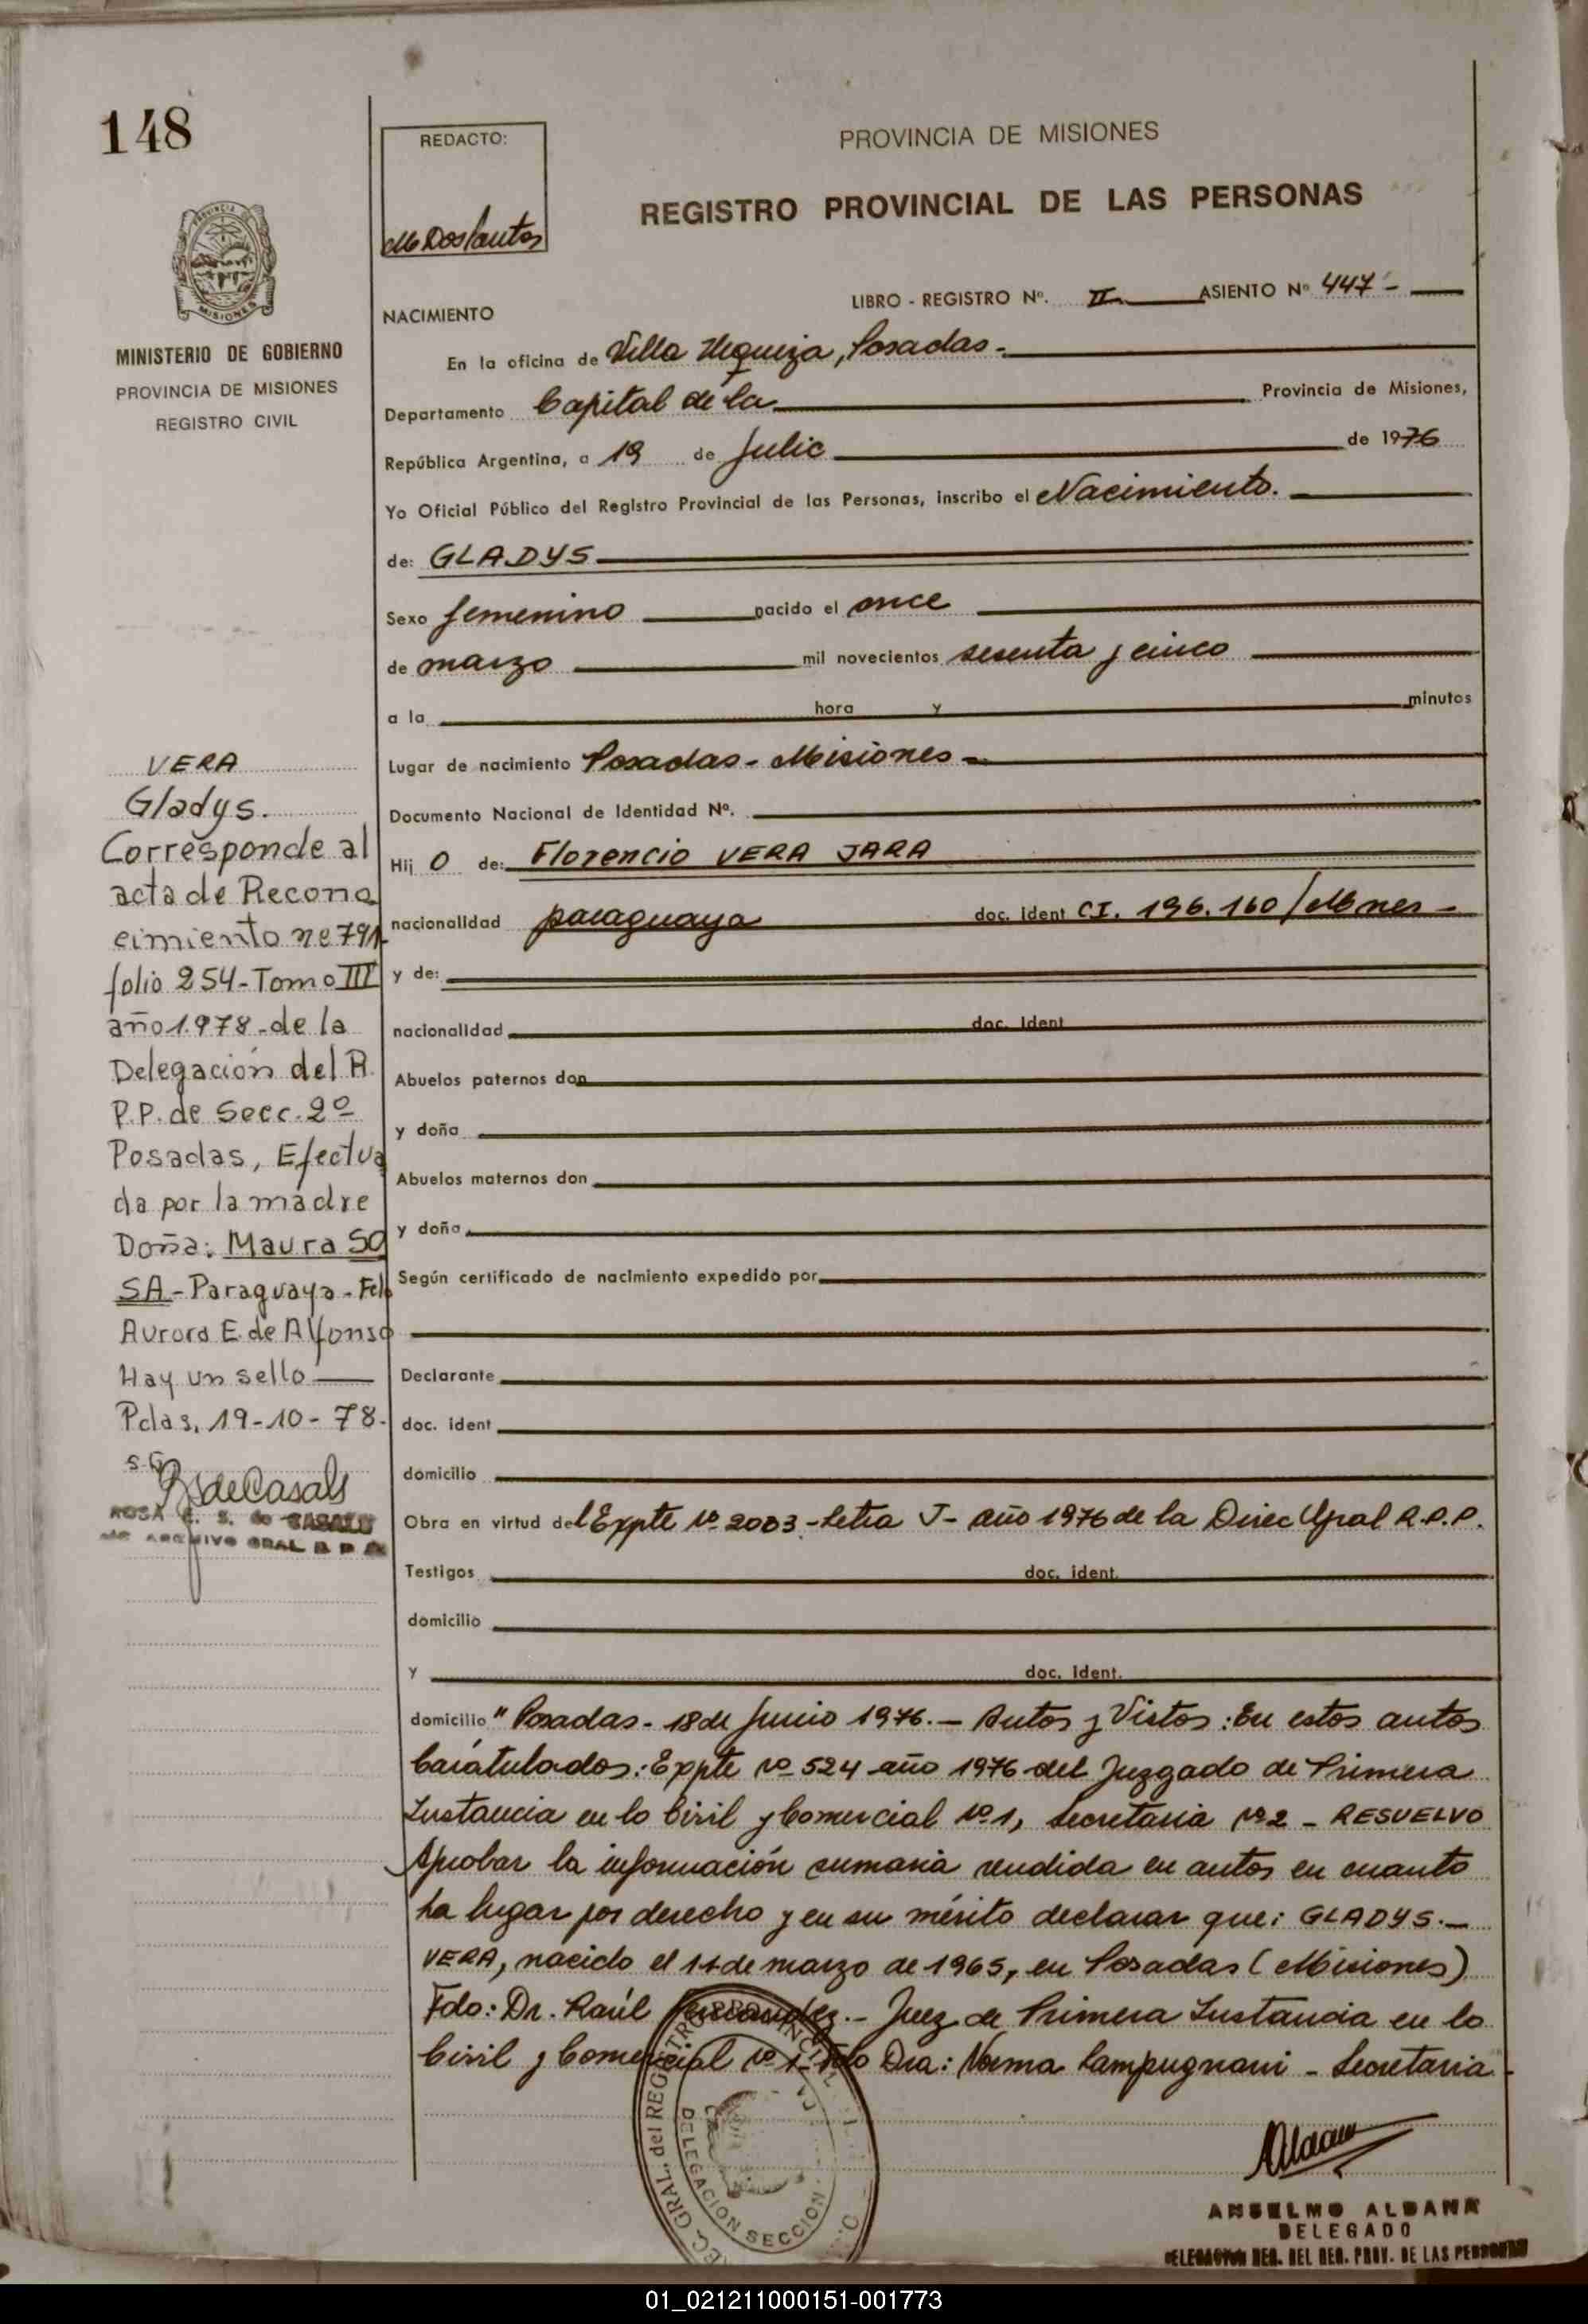 148
REDACTO:
M Dos Santos
PROVINCIA DE MISIONES
REGISTRO PROVINCIAL DE LAS PERSONAS
PROVINCIA DE
MISIONES
MINISTERIO DE GOBIERNO
PROVINCIA DE MISIONES
REGISTRO CIVIL
LIBRO - REGISTRO Nº. II ASIENTO Nº 447 -
NACIMIENTO
En la oficina de Villa Urquiza, Posadas -
Departamento Capital de la Provincia de Misiones,
República Argentina, a 19 de Julio de 1976
Yo Oficial Público del Registro Provincial de las Personas, inscribo el Nacimiento.
de: GLADYS
Sexo femenino nacido el once
de marzo mil novecientos sesenta y cinco
a la hora y minutos
Lugar de nacimiento Posadas - Misiones -
Documento Nacional de Identidad Nº.
Hij o de: Florencio VERA JARA
nacionalidad paraguaya doc. ident CI. 196.160 / Mnes -
y de:
nacionalidad doc. ident
Abuelos paternos don
y doña
Abuelos maternos don
y doña
Según certificado de nacimiento expedido por
Declarante
doc. ident
domicilio
Obra en virtud del Expte Nº 2003 - Letra J - año 1976 de la Direc Gral R.P.P.
Testigos doc. ident.
domicilio
y doc. ident.
domicilio " Posadas - 18 de Junio 1976. - Autos y Vistos : En estos autos
Caratulados: Expte Nº 524 año 1976 del Juzgado de Primera
Instancia en lo Civil y Comercial Nº 1, Secretaria Nº 2 - RESUELVO
Aprobar la información sumaria rendida en autos en cuanto
ha lugar por derecho y en su mérito declarar que: GLADYS. -
VERA, nacido el 11 de marzo de 1965, en Posadas ( Misiones )
Fdo: Dr. Raúl Fernandez. - Juez de Primera Instancia en lo
Civil y Comercial Nº 1 - Fdo Dra: Norma Lampugnani - Secretaria -
VERA
Gladys.
Corresponde al
acta de Recono
cimiento nº 791-
folio 254 - Tomo III
año 1.978 - de la
Delegación del R.
P.P. de Secc. 2º
Posadas, Efectua
da por la madre
Doña: Maura SO
SA - Paraguaya - Fdo
Aurora E. de Alfonso
Hay un sello
Pdas, 19-10-78.
S.G.
R S de Casals
ROSA E. S. de CASALS
ARCHIVO GRAL R P P
GRAL. del REGISTRO PROVINCIAL
DELEGACION SECCION
Aldana
ANSELMO ALDANA
DELEGADO
DELEGACION REG. DEL REG. PROV. DE LAS PERSONAS
01_021211000151-001773